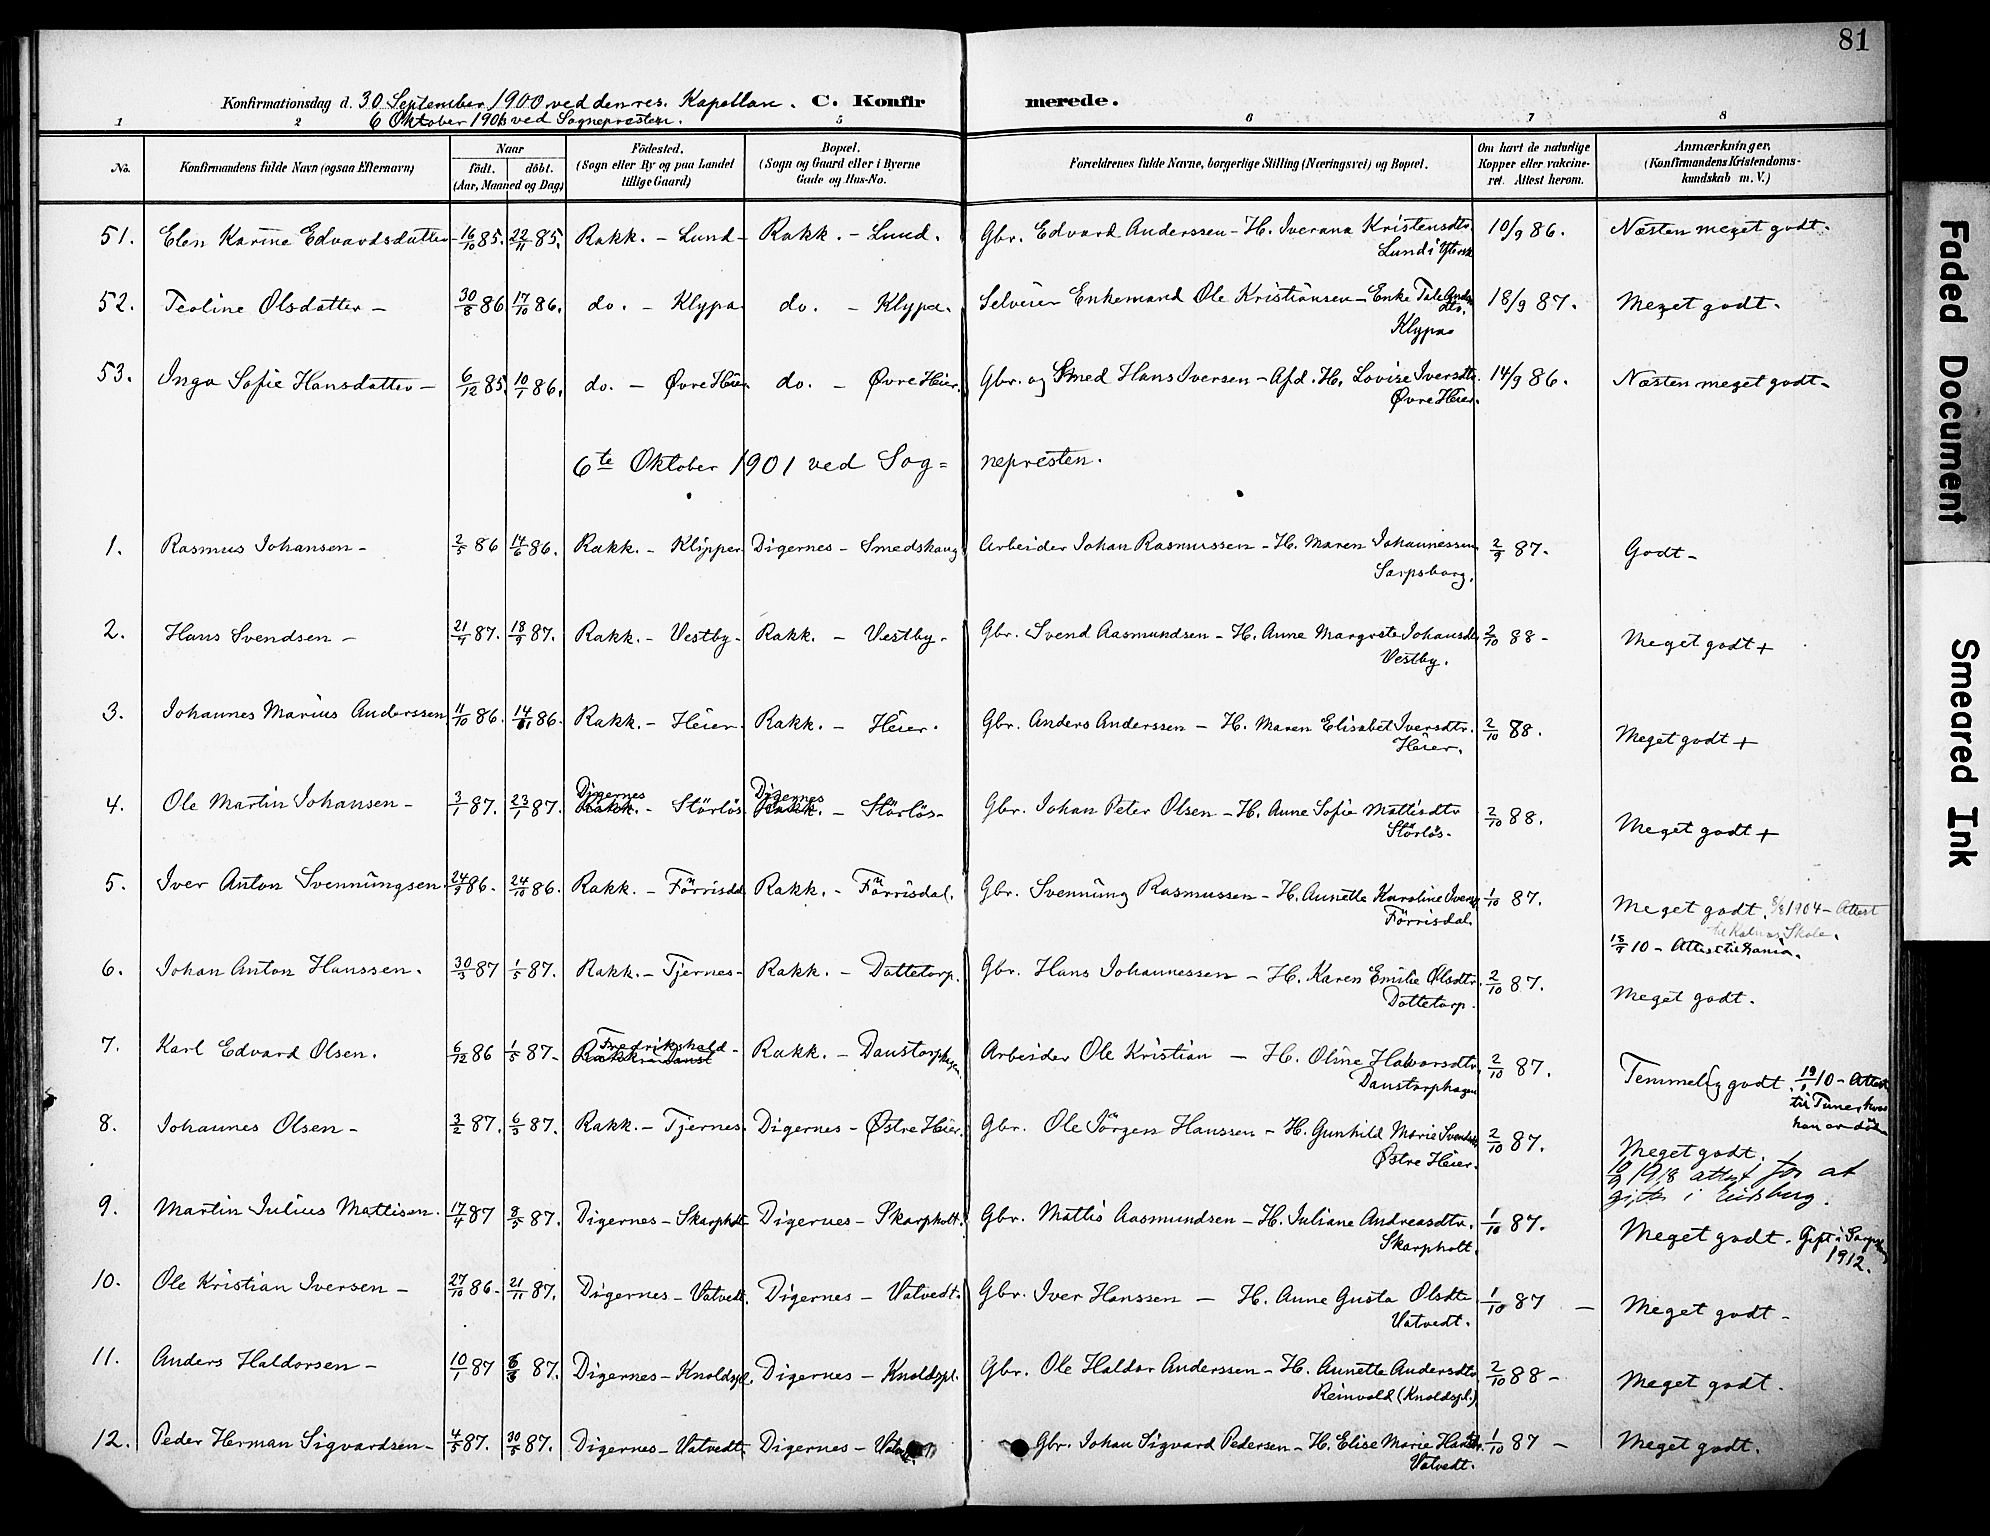 81
Konfirmationsdag d. 30 September 1900 ved den res. Kapellan. C. Konfirmerede.
6 Oktober 1901 ved Sognepresten.
1 2 5 6 7 8
No. Konfirmandens fulde Navn (ogsaa Efternavn) Naar født. døbt. (Aar, Maaned og Dag) Fødested. (Sogn eller By og paa Landet tillige Gaard) Bopæl. (Sogn og Gaard eller i Byerne Gade og Hus-No. Forældrenes fulde Navne, borgerlige Stilling (Næringsvei) og Bopæl. Om havt de naturlige Kopper eller vakcineret. Attest herom. Anmærkninger. (Konfirmandens Kristendomskundskab m. V.)
51. Elen Karine Edvardsdatter 16/10 85. 22/11 85. Rakk. - Lund - Rakk. - Lund. Gbr. Edvard Anderssen - H. Iverana Kristensdtr. 10/9 86. Næsten meget godt.
Lund i
52. Teoline Olsdatter - 30/8 86. 17/10 86. do. - Klypa do. - Klypa. Selveier Enkemand Ole Kristiansen - Enke Tale Anders dtr. 18/9 87. Meget godt.
Klypa
53. Inga Sofie Hansdatter - 6/12 85. 10/1 86. do. - Øvre Heier. do. - Øvre Heier. Gbr. og Smed Hans Iversen - Afd. H. Lovise Iversdtr. 14/9 86. Næsten meget godt -
Øvre Heier.
6te Oktober 1901 ved Sog= nepresten.
1. Rasmus Johansen - 2/5 86 14/6 86. Rakk. - Klipper Digernes - Smedshaug Arbeider Johan Rasmussen - H. Maren Johannessen 2/9 87. Godt -
Sarpsborg.
2. Hans Svendsen - 21/7 87. 18/9 87. Rakk. - Vestby. Rakk. - Vestby. Gbr. Svend Aasmundsen - H. Anne Margrete Johansdtr 2/10 88 - Meget godt +
Vestby.
3. Johannes Marius Anderssen 11/10 86. 14/11 86. Rakk. - Heier. Rakk. - Heier. Gbr. Anders Anderssen - H. Maren Elisabet Iversdtr. 2/10 88. Meget godt +
Heier.
Digernes Digernes
4. Ole Martin Johansen - 3/1 87. 23/1 87. Rakk. - Störlös Rakk. - Störlös - Gbr. Johan Peter Olsen - H. Anne Sofie Mattisdtr 2/10 88. Meget godt +
Störlös.
5. Iver Anton Svennungsen. 24/9 86. 24/10 86. Rakk. - Förrisdal Rakk. - Förrisdal. Gbr. Svennung Rasmussen - H. Annette Karoline Ivers. 1/10 87. Meget godt. 8/8 1904 - Attest
Förrisdal. Skole.
6. Johan Anton Hanssen. 30/3 87 1/5 87. Rakk. - Tjernes - Rakk. - Dottetorp. Gbr. Hans Johannessen - H. Karen Emilie Olsdtr. 2/10 87. Meget godt.
Dottetorp.
Fredrikshald -
7. Karl Edvard Olsen. 6/12 86 1/5 87 - Rakk. - Danst Rakk. - Danstorphagen. Arbeider Ole Kristian - H. Oline Halvorsdtr. 2/10 87. Temmelig godt. 19/1 10 - Attest
Danstorphagen til Tune hvor
han er död
8. Johannes Olsen - 3/2 87. 6/3 87. Rakk. - Tjernes. Digernes - Østre Heier. Gbr. Ole Jörgen Hanssen - H. Gunhild Marie Svendsdtr 2/10 87. Meget godt.
Østre Heier. 10/9 1918 attest for at
gifte i Eidsberg.
9. Martin Julius Mattisen. 17/4 87 8/5 87. Digernes - Skarpholt Digernes - Skarpholt. Gbr. Mattis Aasmundsen - H. Juliane Andreasdtr. 1/10 87. Meget godt. Gift i Sarpsborg
Skarpholt. 1912.
10. Ole Kristian Iversen - 27/10 86 - 21/11 87. Digernes - Vatvedt. Digernes - Vatvedt. Gbr. Iver Hanssen - H. Anne Gusta Olsdtr 1/10 87 - Meget godt -
Vatvedt.
11. Anders Haldorsen - 10/1 87 6/3 87. Digernes - Knoldspl. Digernes - Knoldspl. Gbr. Ole Haldor Anderssen - H. Annette Andersdtr 2/10 88 - Meget godt.
Reinvold (Knoldspl.)
12. Peder Herman Sigvardsen - 4/5 87. 30/5 87. Digernes - Vatvedt. Digernes - Vatvedt. Gbr. Johan Sigvard Pedersen - H. Elise Marie Hansdtr. 1/10 87 - Meget godt.
Vatvedt.
Faded Document
Smeared Ink